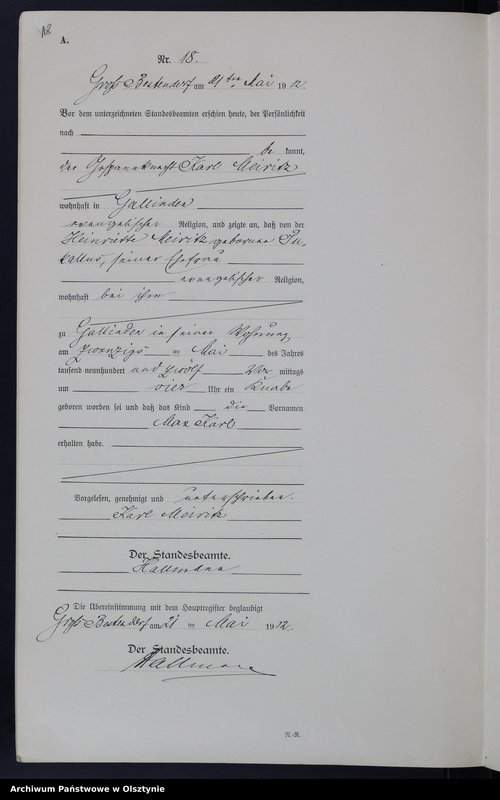 18
A.
Nr. 18.
Groß Bestendorf am 21 ten Mai 1912.
Vor dem unterzeichneten Standesbeamten erschien heute, der Persönlichkeit
nach
be kannt,
der Karl Meiritz
wohnhaft in Gallinden
evangelischer Religion, und zeigte an, daß von der
Henriette Meiritz geborenen
seiner Ehefrau
evangelischer Religion,
wohnhaft bei ihm
zu Gallinden in seiner Wohnung
am zwanzigs ten Mai des Jahres
tausend neunhundert und zwölf Vor mittags
um vier Uhr ein Knabe
geboren worden sei und daß das Kind die Vornamen
Max Karl
erhalten habe.
Vorgelesen, genehmigt und unterschrieben.
Karl Meiritz
Der Standesbeamte.
Hallmann
Die Übereinstimmung mit dem Hauptregister beglaubigt
Groß Bestendorf am 21 ten Mai 1912.
Der Standesbeamte.
Hallmann
N.-R.
Archiwum Państwowe w Olsztynie